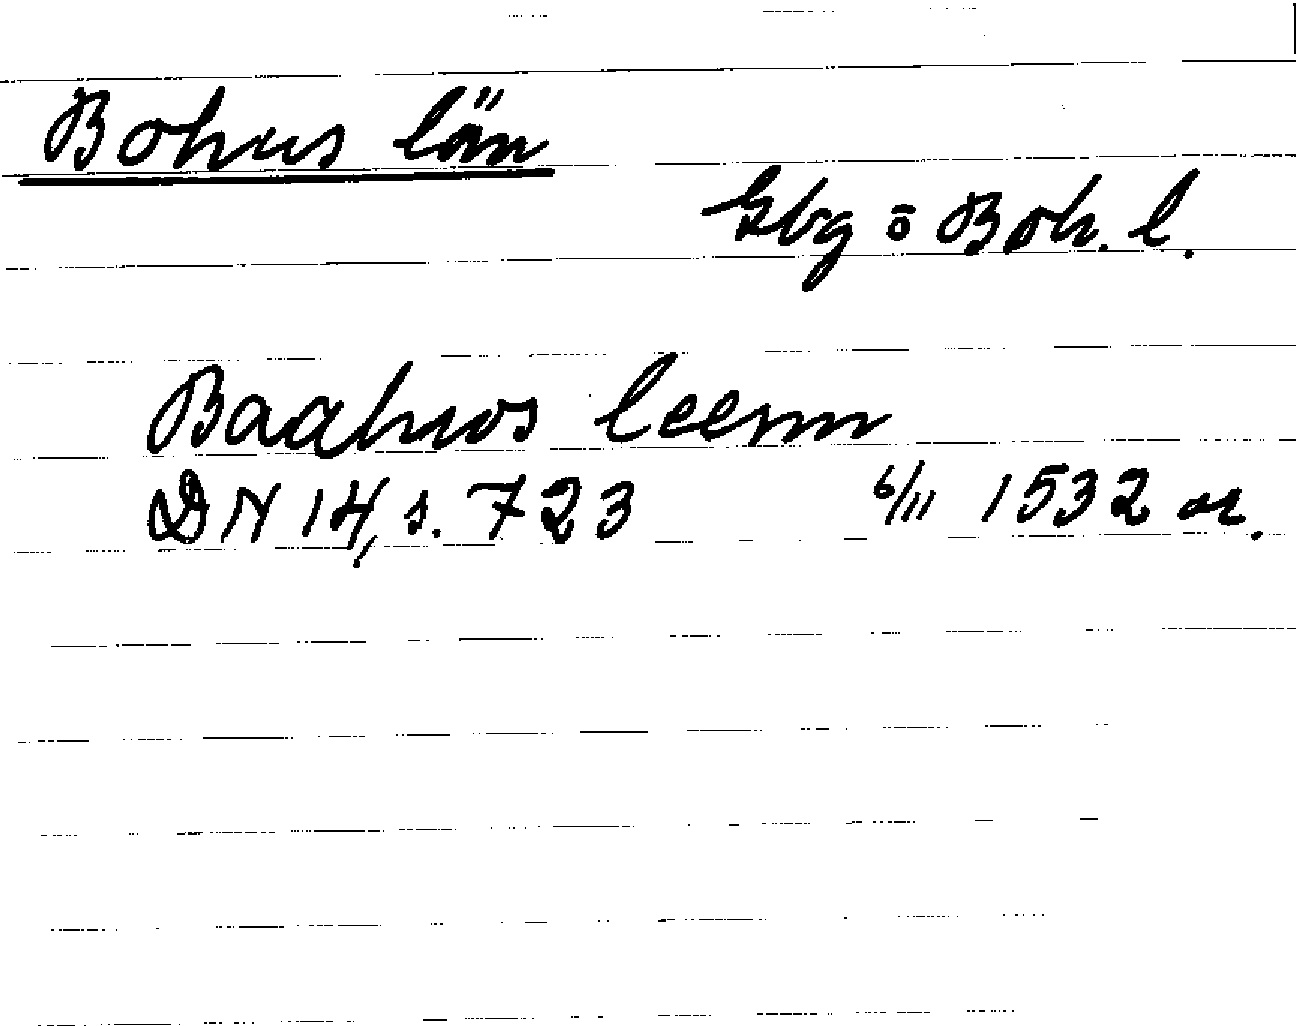 Bohus län
Gbg o Boh. l.
Baahws leenn
DN 14, s. 723 6/11 1532 or.